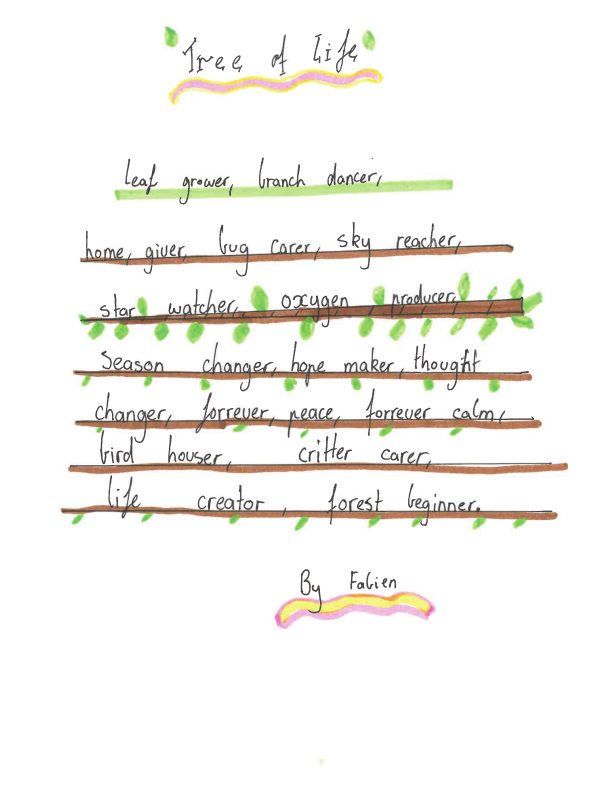 Tree of Life
leaf grower, branch dancer,
home, giver, bug carer, sky reacher,
star watcher, oxygen producer,
Season changer, hope maker, thought
changer, forrever, peace, forrever calm,
bird houser, critter carer,
life creator, forest beginner.
By Fabien